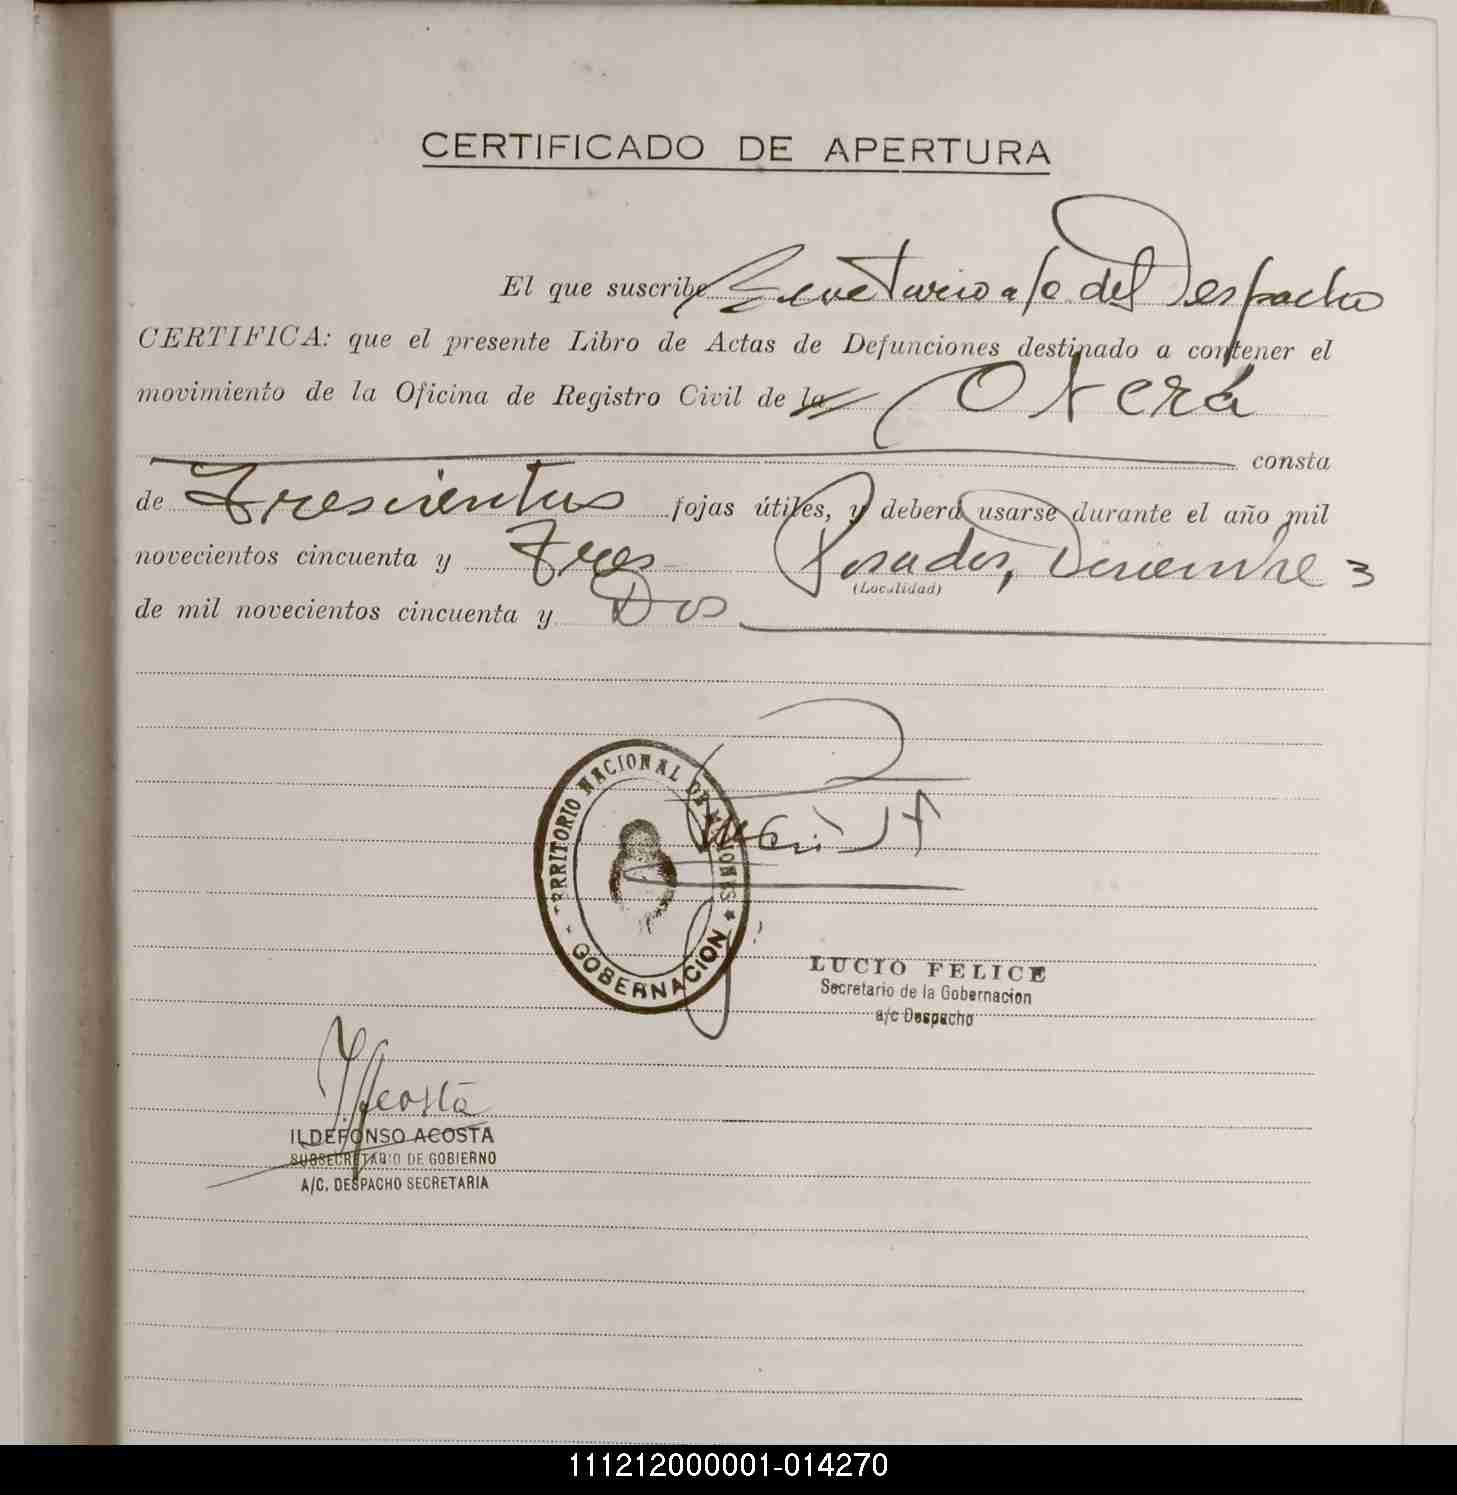 CERTIFICADO DE APERTURA
El que suscribe Secretario a/c del Despacho
CERTIFICA: que el presente Libro de Actas de Defunciones destinado a contener el
movimiento de la Oficina de Registro Civil de la Oberá
consta
de Trescientos fojas útiles, y deberá usarse durante el año mil
novecientos cincuenta y Tres Posadas, Diciembre 3
(Localidad)
de mil novecientos cincuenta y Dos
TERRITORIO NACIONAL DE MISIONES
GOBERNACION
LUCIO FELICE
Secretario de la Gobernacion
a/c Despacho
Acosta
ILDEFONSO ACOSTA
SUBSECRETARIO DE GOBIERNO
A/C. DESPACHO SECRETARIA
111212000001-014270